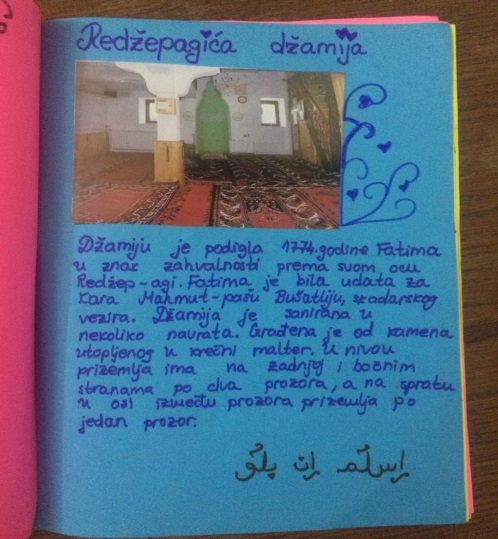 Redžepagića džamija
Džamiju je podigla 1774.godine Fatima
u znak zahvalnosti prema svom ocu
Redžep-agi. Fatima je bila udata za
Kara Mahmut-pašu Bušatliju, skadarskog
vezira. Džamija je sanirana u
nekoliko navrata. Građena je od kamena
utopljenog u krečni malter. U nivou
prizemlja ima na zadnjoj i bočnim
stranama po dva prozora, a na spratu
u osi između prozora prizemlja po
jedan prozor.